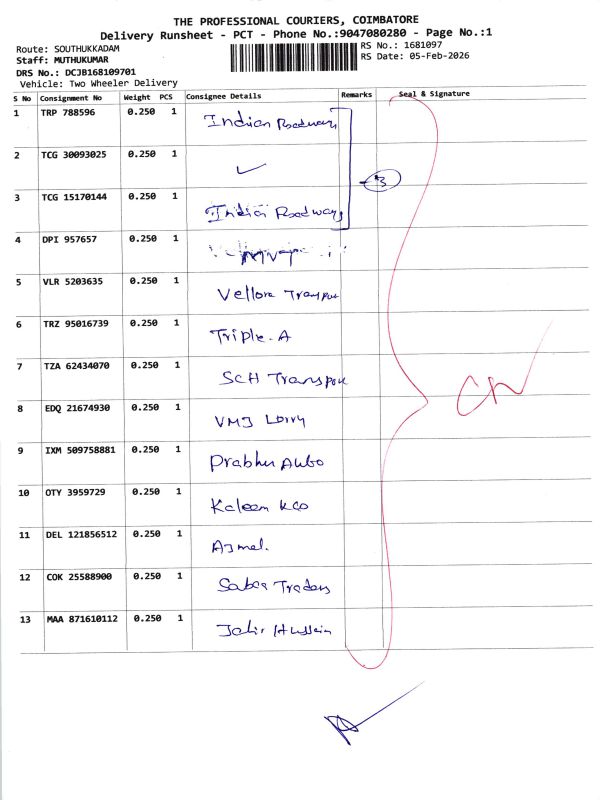 THE PROFESSIONAL COURIERS, COIMBATORE
Delivery Runsheet - PCT - Phone No.:9047080280 - Page No.:1
Route: SOUTHUKKADAM
RS No.: 1681097
Staff: MUTHUKUMAR
RS Date: 05-Feb-2026
DRS No.: DCJB168109701
Vehicle: Two Wheeler Delivery
S No Consignment No Weight PCS Consignee Details Remarks Seal & Signature
1 TRP 788596 0.250 1 Indian Roadways
2 TCG 30093025 0.250 1 ✓
3
3 TCG 15170144 0.250 1 Indian Roadways
4 DPI 957657 0.250 1
5 VLR 5203635 0.250 1 Vellore Transport
6 TRZ 95016739 0.250 1 Triple. A
7 TZA 62434070 0.250 1 SCH Transport
8 EDQ 21674930 0.250 1 VMJ Lorry
9 IXM 509758881 0.250 1 Prabhu Auto
10 OTY 3959729 0.250 1 Kaleem
11 DEL 121856512 0.250 1 Ajmal.
12 COK 25588900 0.250 1 Traders
13 MAA 871610112 0.250 1 Hussain